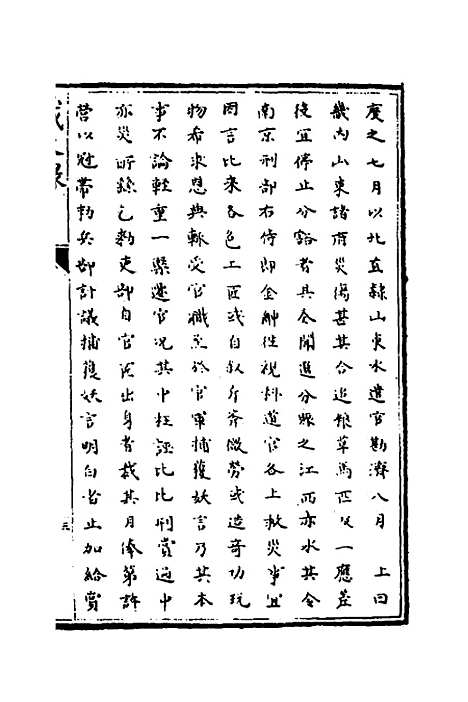 度之七月以北直隸山東水遣官勘濟八月　上曰
畿內山東諸有災傷甚其合追粮草馬匹及一應差
役宜停止分豁者具令開選分縣之江西亦水其令
南京刑部右侍郎金紳往視科道官各上救災事宜
因言比來各色工匠或自叙斤斧微勞或造奇功玩
物希求恩典輒受官職至於官軍捕獲妖言乃其本
事不論輕重一槩遷官况其中枉誣比比刑賞過中
亦災所繇乞勑吏部自官匠出身者裁其月俸第許
營以冠帶勑兵部計議捕獲妖言明白者止加給賞
三